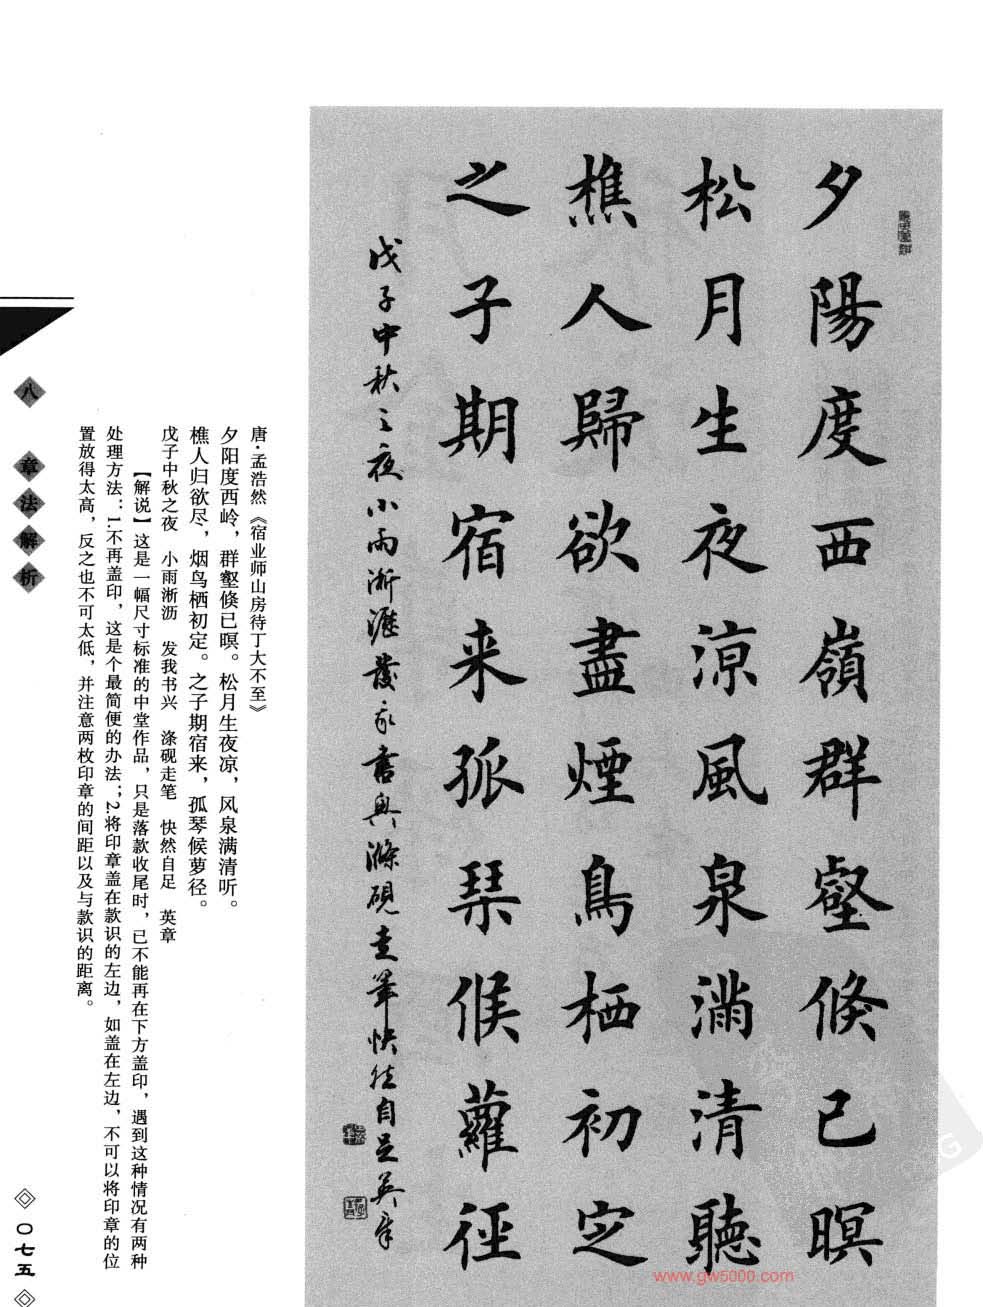 夕陽度西嶺群壑倏已暝
松月生夜涼風泉滿清聽
樵人歸欲盡煙鳥栖初定
之子期宿来孤琹候蘿徑
戊子中秋之夜小雨淅瀝發我書興滌硯走筆快然自足英章
唐·孟浩然《宿业师山房待丁大不至》
夕阳度西岭，群壑倏已暝。松月生夜凉，风泉满清听。
樵人归欲尽，烟鸟栖初定。之子期宿来，孤琴候萝径。
戊子中秋之夜　小雨淅沥　发我书兴　涤砚走笔　快然自足　英章
【解说】这是一幅尺寸标准的中堂作品，只是落款收尾时，已不能再在下方盖印，遇到这种情况有两种
处理方法：1.不再盖印，这是个最简便的办法；2.将印章盖在款识的左边，如盖在左边，不可以将印章的位
置放得太高，反之也不可太低，并注意两枚印章的间距以及与款识的距离。
八 章法解析
〇七五
www.gw5000.com